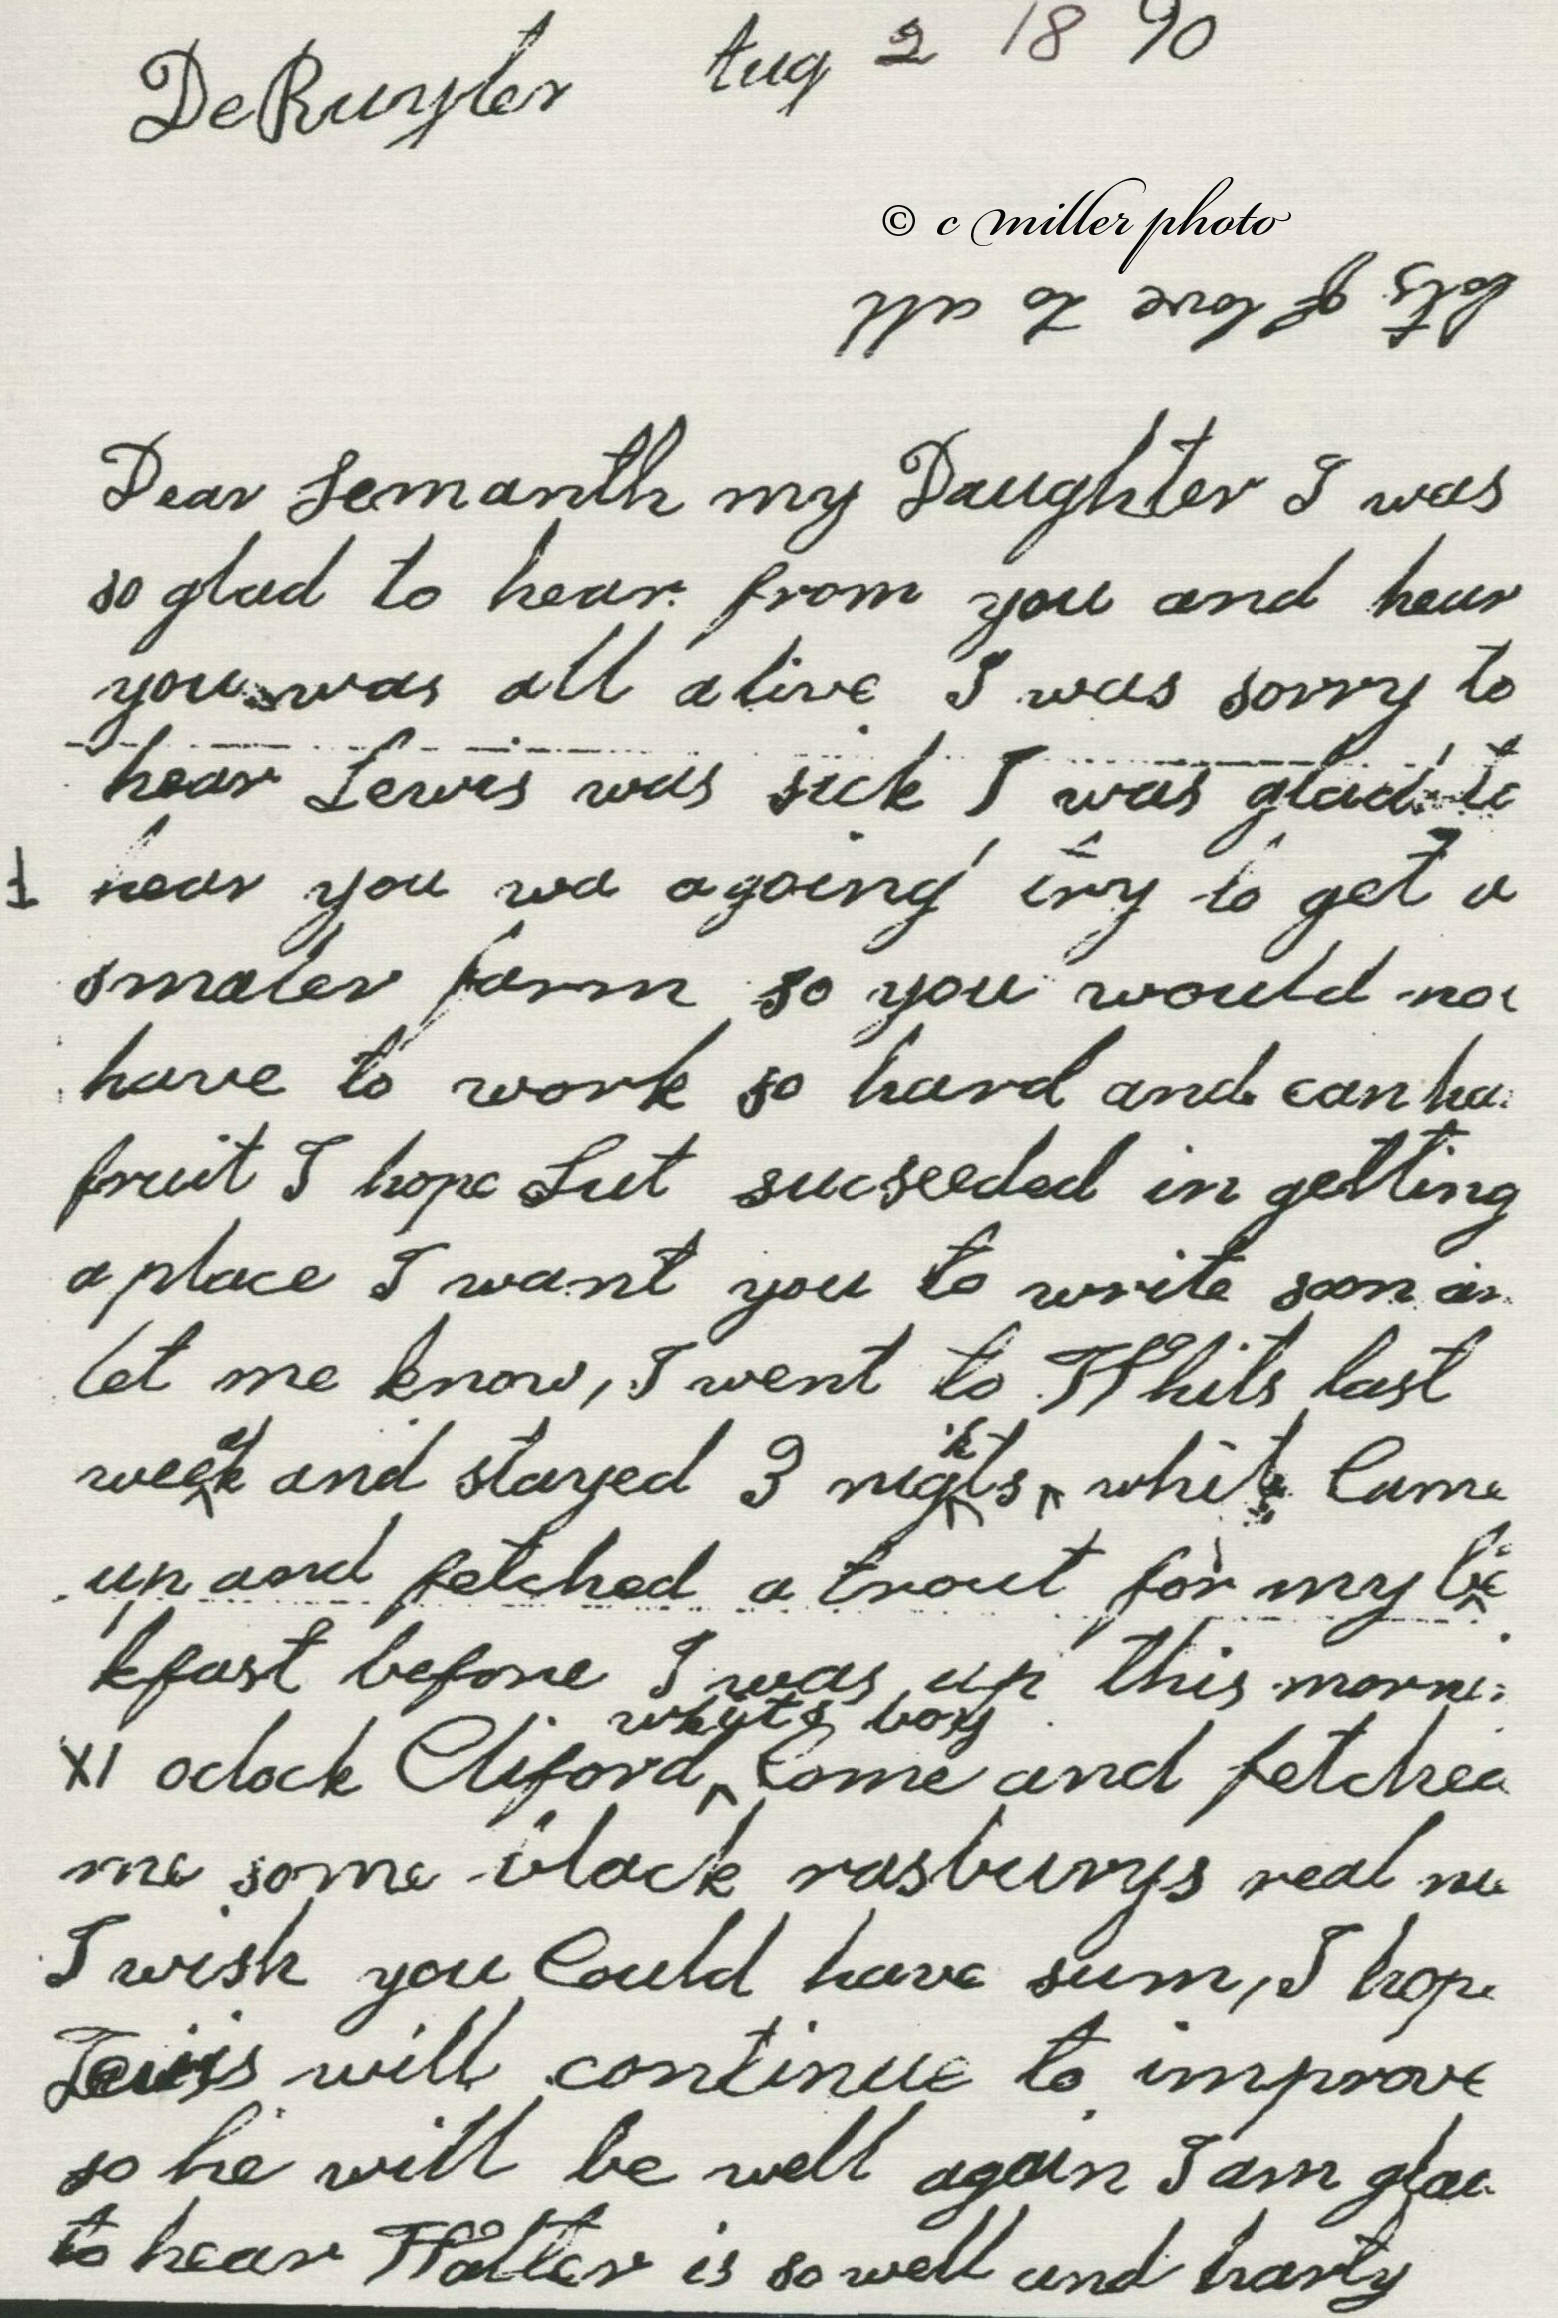 DeRuyter Aug 2 1890
© c miller photo
lots of love to all
Dear Semanth my Daughter I was
so glad to hear from you and hear
you was all alive I was sorry to
hear Lewis was sick I was glad to
hear you wa agoing try to get a
smaler farm so you would no
have to work so hard and can ha
fruit I hope Lut sucseeded in getting
a place I want you to write soon an
let me know, I went to Whits last
week and stayed 3 nights whit Came
up and fetched a trout for my
kfast before I was up this morni
XI oclock Cliford whyts boy Come and fetched
me some black rasburys real
I wish you Could have sum, I hope
Lewis will continue to improve
so he will be well again I am glad
to hear Walter is so well and harty